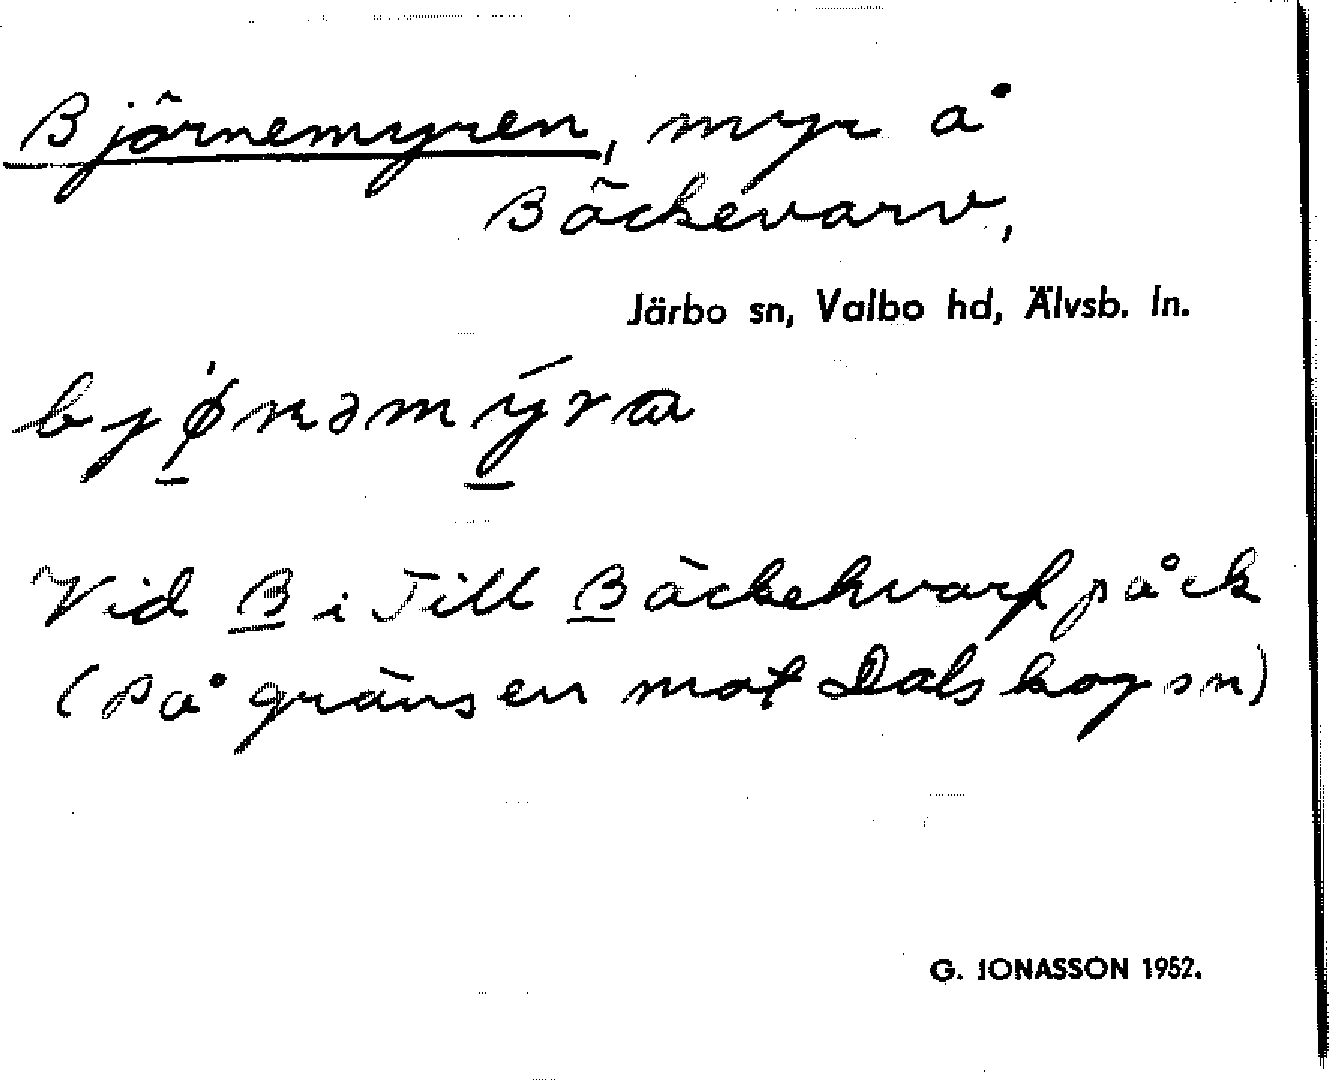 Björnemyren, myr å
Bäckevarv,
Järbo sn, Valbo hd, Älvsb. ln.
bjønəmýra
Vid B i Till Bäckehvarf på ck
(På gränsen mot Dalskog sn)
G. JONASSON 1952.